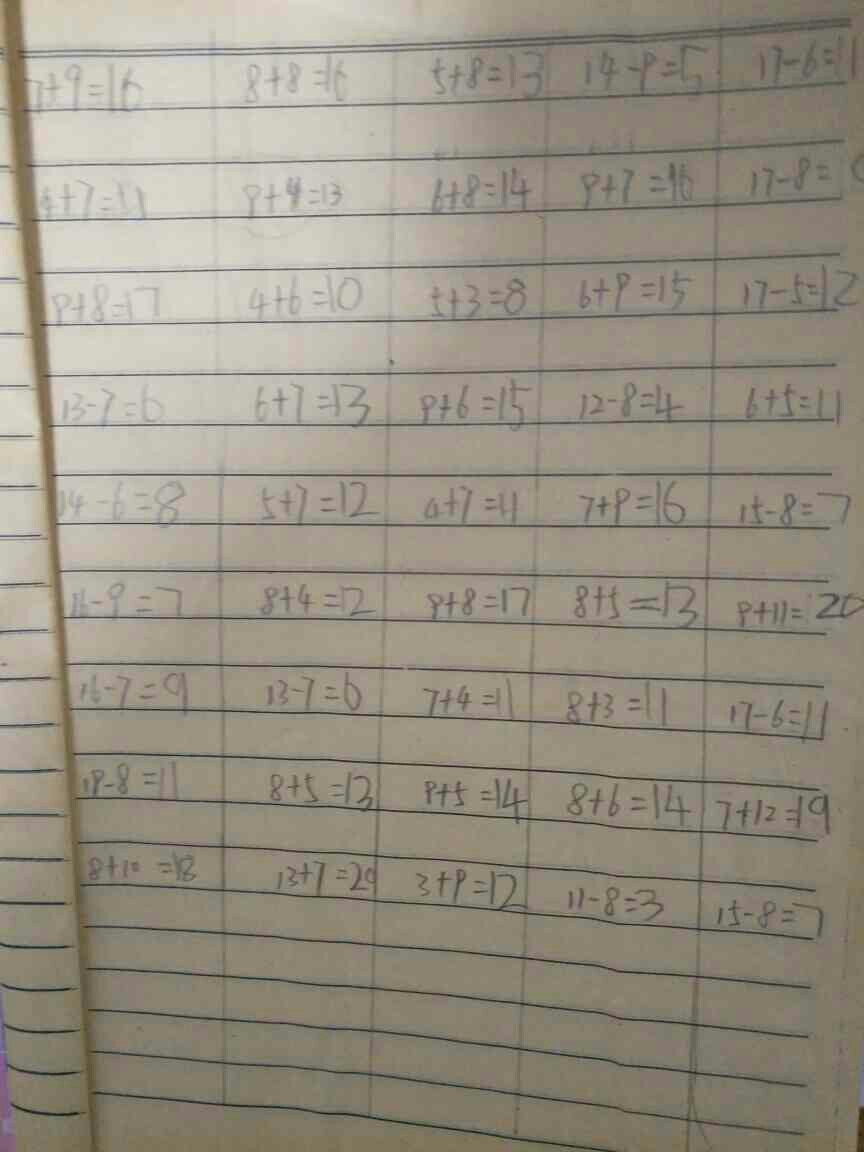 7+9=16 8+8=16 5+8=13 14-9=5 17-6=11
4+7=11 9+4=13 6+8=14 9+7=16 17-8=
9+8=17 4+6=10 5+3=8 6+9=15 17-5=12
13-7=6 6+7=13 9+6=15 12-8=4 6+5=11
14-6=8 5+7=12 4+7=11 7+9=16 15-8=7
16-9=7 8+4=12 9+8=17 8+5=13 9+11=20
16-7=9 13-7=6 7+4=11 8+3=11 17-6=11
19-8=11 8+5=13 9+5=14 8+6=14 7+12=19
8+10=18 13+7=20 3+9=12 11-8=3 15-8=7